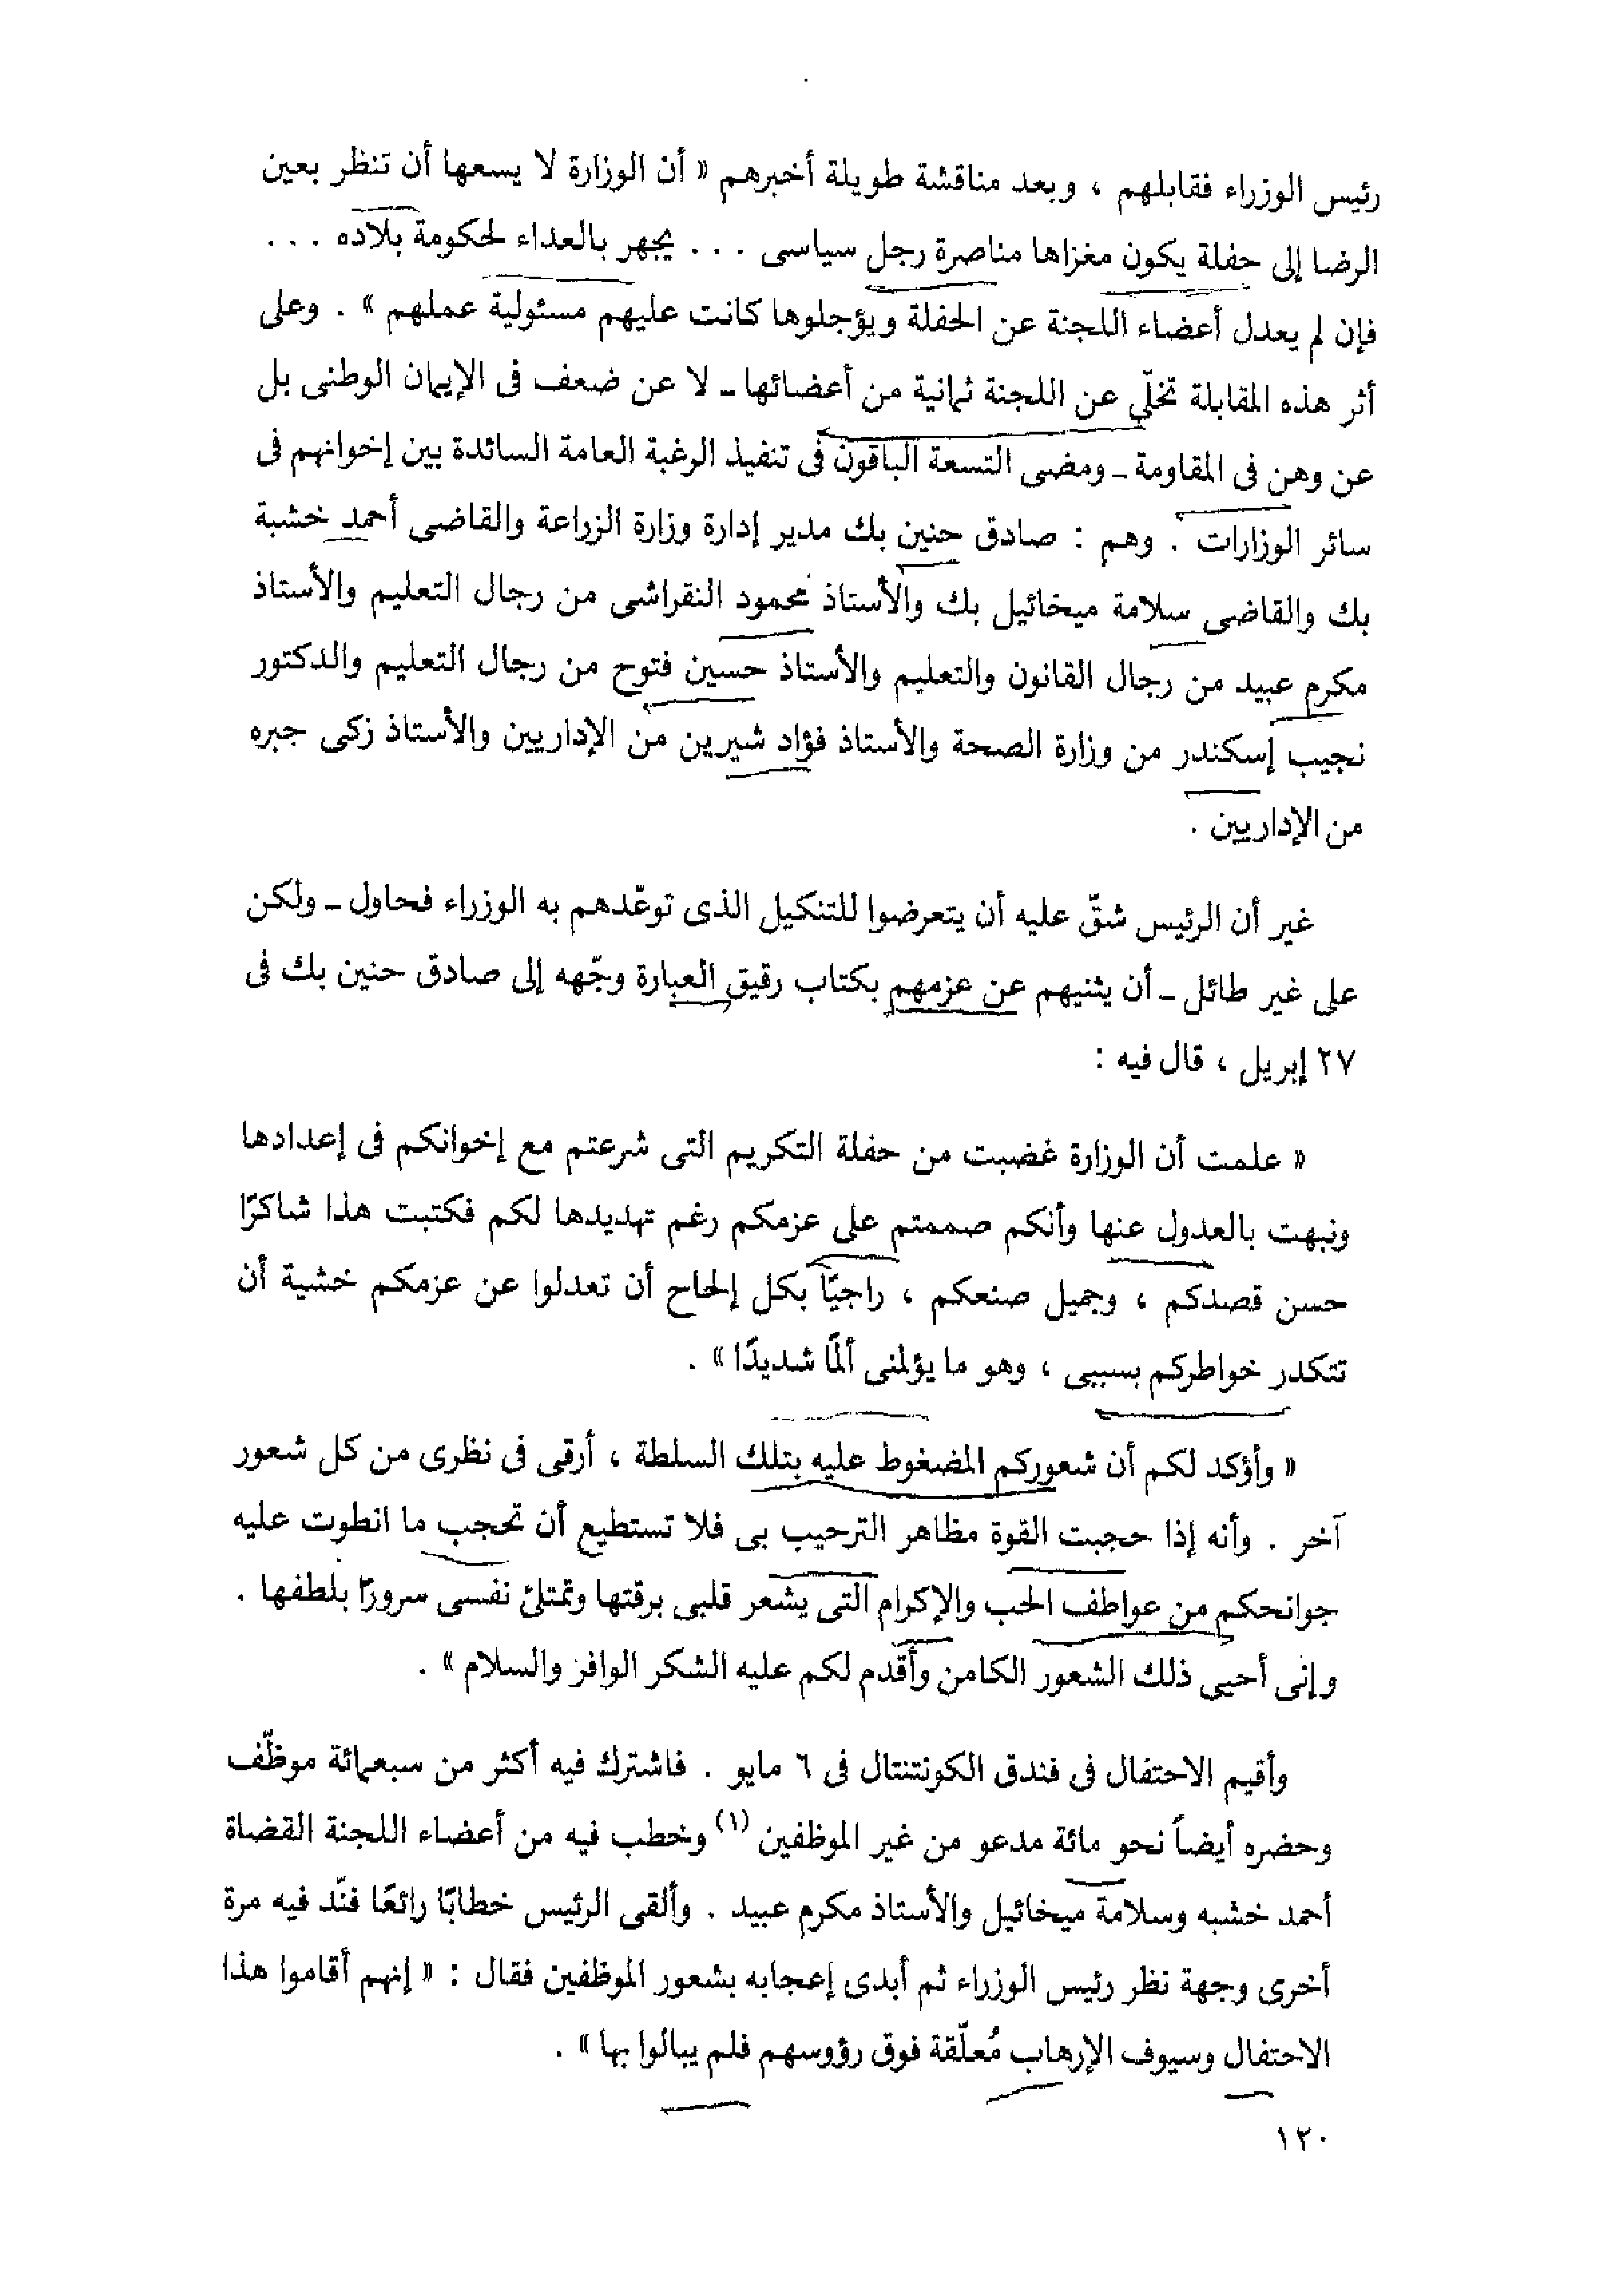 رئيس الوزراء فقابلهم ، وبعد مناقشة طويلة أخبرهم « أن الوزارة لا يسعها أن تنظر بعين
الرضا إلى حفلة يكون مغزاها مناصرة رجل سياسى . . . يجهر بالعداء لحكومة بلاده . . .
فإن لم يعدل أعضاء اللجنة عن الحفلة ويؤجلوها كانت عليهم مسئولية عملهم » . وعلى
أثر هذه المقابلة تخلّى عن اللجنة ثمانية من أعضائها ـ لا عن ضعف فى الإيمان الوطنى بل
عن وهن فى المقاومة ـ ومضى التسعة الباقون فى تنفيذ الرغبة العامة السائدة بين إخوانهم فى
سائر الوزارات . وهم : صادق حنين بك مدير إدارة وزارة الزراعة والقاضى أحمد خشبة
بك والقاضى سلامة ميخائيل بك والأستاذ محمود النقراشى من رجال التعليم والأستاذ
مكرم عبيد من رجال القانون والتعليم والأستاذ حسين فتوح من رجال التعليم والدكتور
نجيب إسكندر من وزارة الصحة والأستاذ فؤاد شيرين من الإداريين والأستاذ زكى جبره
من الإداريين .
غير أن الرئيس شقّ عليه أن يتعرضوا للتنكيل الذى توعّدهم به الوزراء فحاول ـ ولكن
على غير طائل ـ أن يثنيهم عن عزمهم بكتاب رقيق العبارة وجّهه إلى صادق حنين بك فى
٢٧ إبريل ، قال فيه :
« علمت أن الوزارة غضبت من حفلة التكريم التى شرعتم مع إخوانكم فى إعدادها
ونبهت بالعدول عنها وأنكم صممتم على عزمكم رغم تهديدها لكم فكتبت هذا شاكرًا
حسن قصدكم ، وجميل صنعكم ، راجيًا بكل إلحاح أن تعدلوا عن عزمكم خشية أن
تتكدر خواطركم بسببى ، وهو ما يؤلمنى ألمًا شديدًا » .
« وأؤكد لكم أن شعوركم المضغوط عليه بتلك السلطة ، أرقى فى نظرى من كل شعور
آخر . وأنه إذا حجبت القوة مظاهر الترحيب بى فلا تستطيع أن تحجب ما انطوت عليه
جوانحكم من عواطف الحب والإكرام التى يشعر قلبى برقتها وتمتلئ نفسى سرورًا بلطفها .
وإنى أحيى ذلك الشعور الكامن وأقدم لكم عليه الشكر الوافر والسلام » .
وأقيم الاحتفال فى فندق الكونتننتال فى ٦ مايو . فاشترك فيه أكثر من سبعمائة موظّف
وحضره أيضاً نحو مائة مدعو من غير الموظفين (١) وخطب فيه من أعضاء اللجنة القضاة
أحمد خشبه وسلامة ميخائيل والأستاذ مكرم عبيد . وألقى الرئيس خطابًا رائعًا فنّد فيه مرة
أخرى وجهة نظر رئيس الوزراء ثم أبدى إعجابه بشعور الموظفين فقال : « إنهم أقاموا هذا
الاحتفال وسيوف الإرهاب مُعلّقة فوق رؤوسهم فلم يبالوا بها » .
١٢٠